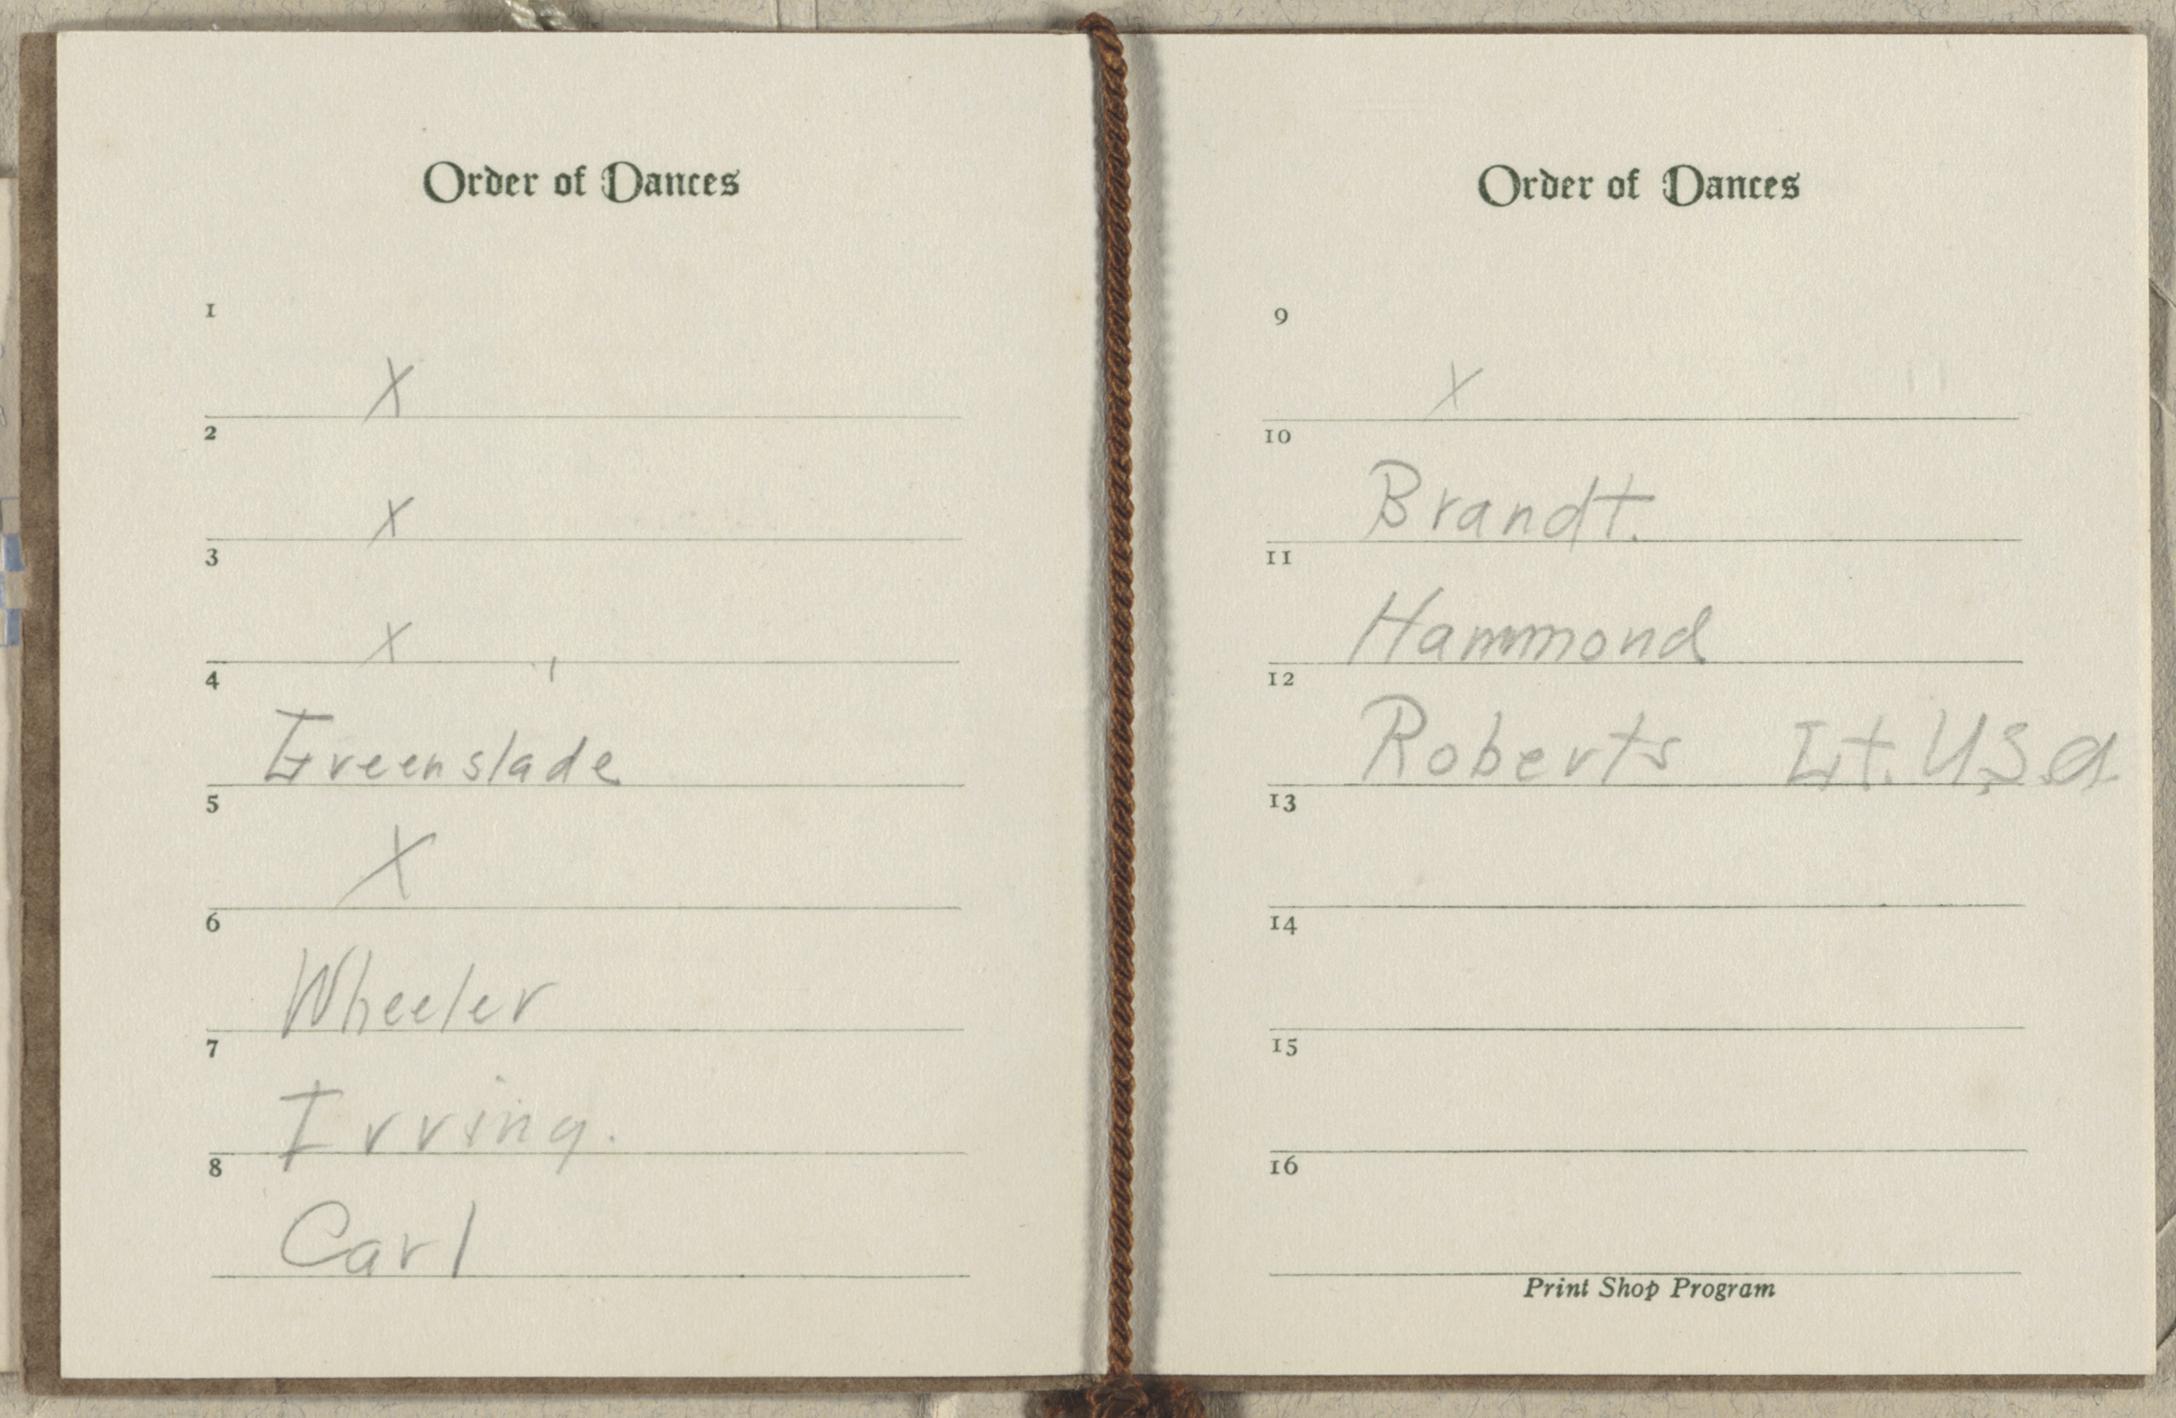 Order of Dances
1
X
2
X
3
X
4
Greenslade
5
X
6
Wheeler
7
Irving.
8
Carl
Order of Dances
9
X
10
Brandt.
11
Hammond
12
Roberts Lt. U.S.A
13
14
15
16
Print Shop Program